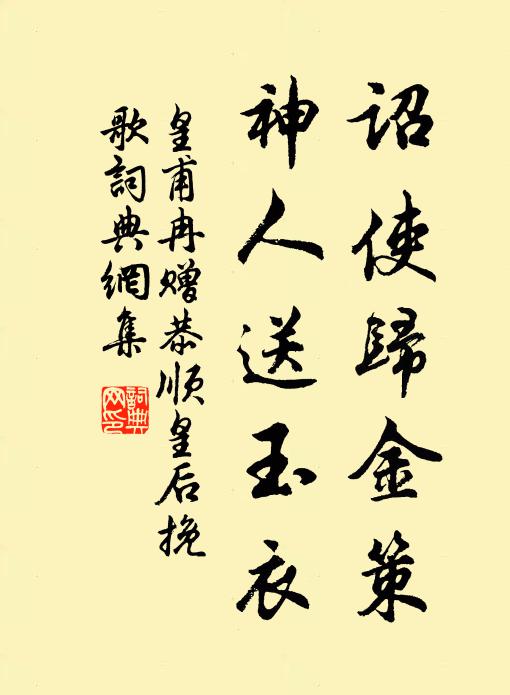 詔使歸金策
神人送玉衣
皇甫冉赠恭順皇后挽
歌詞典網集
詞典网印